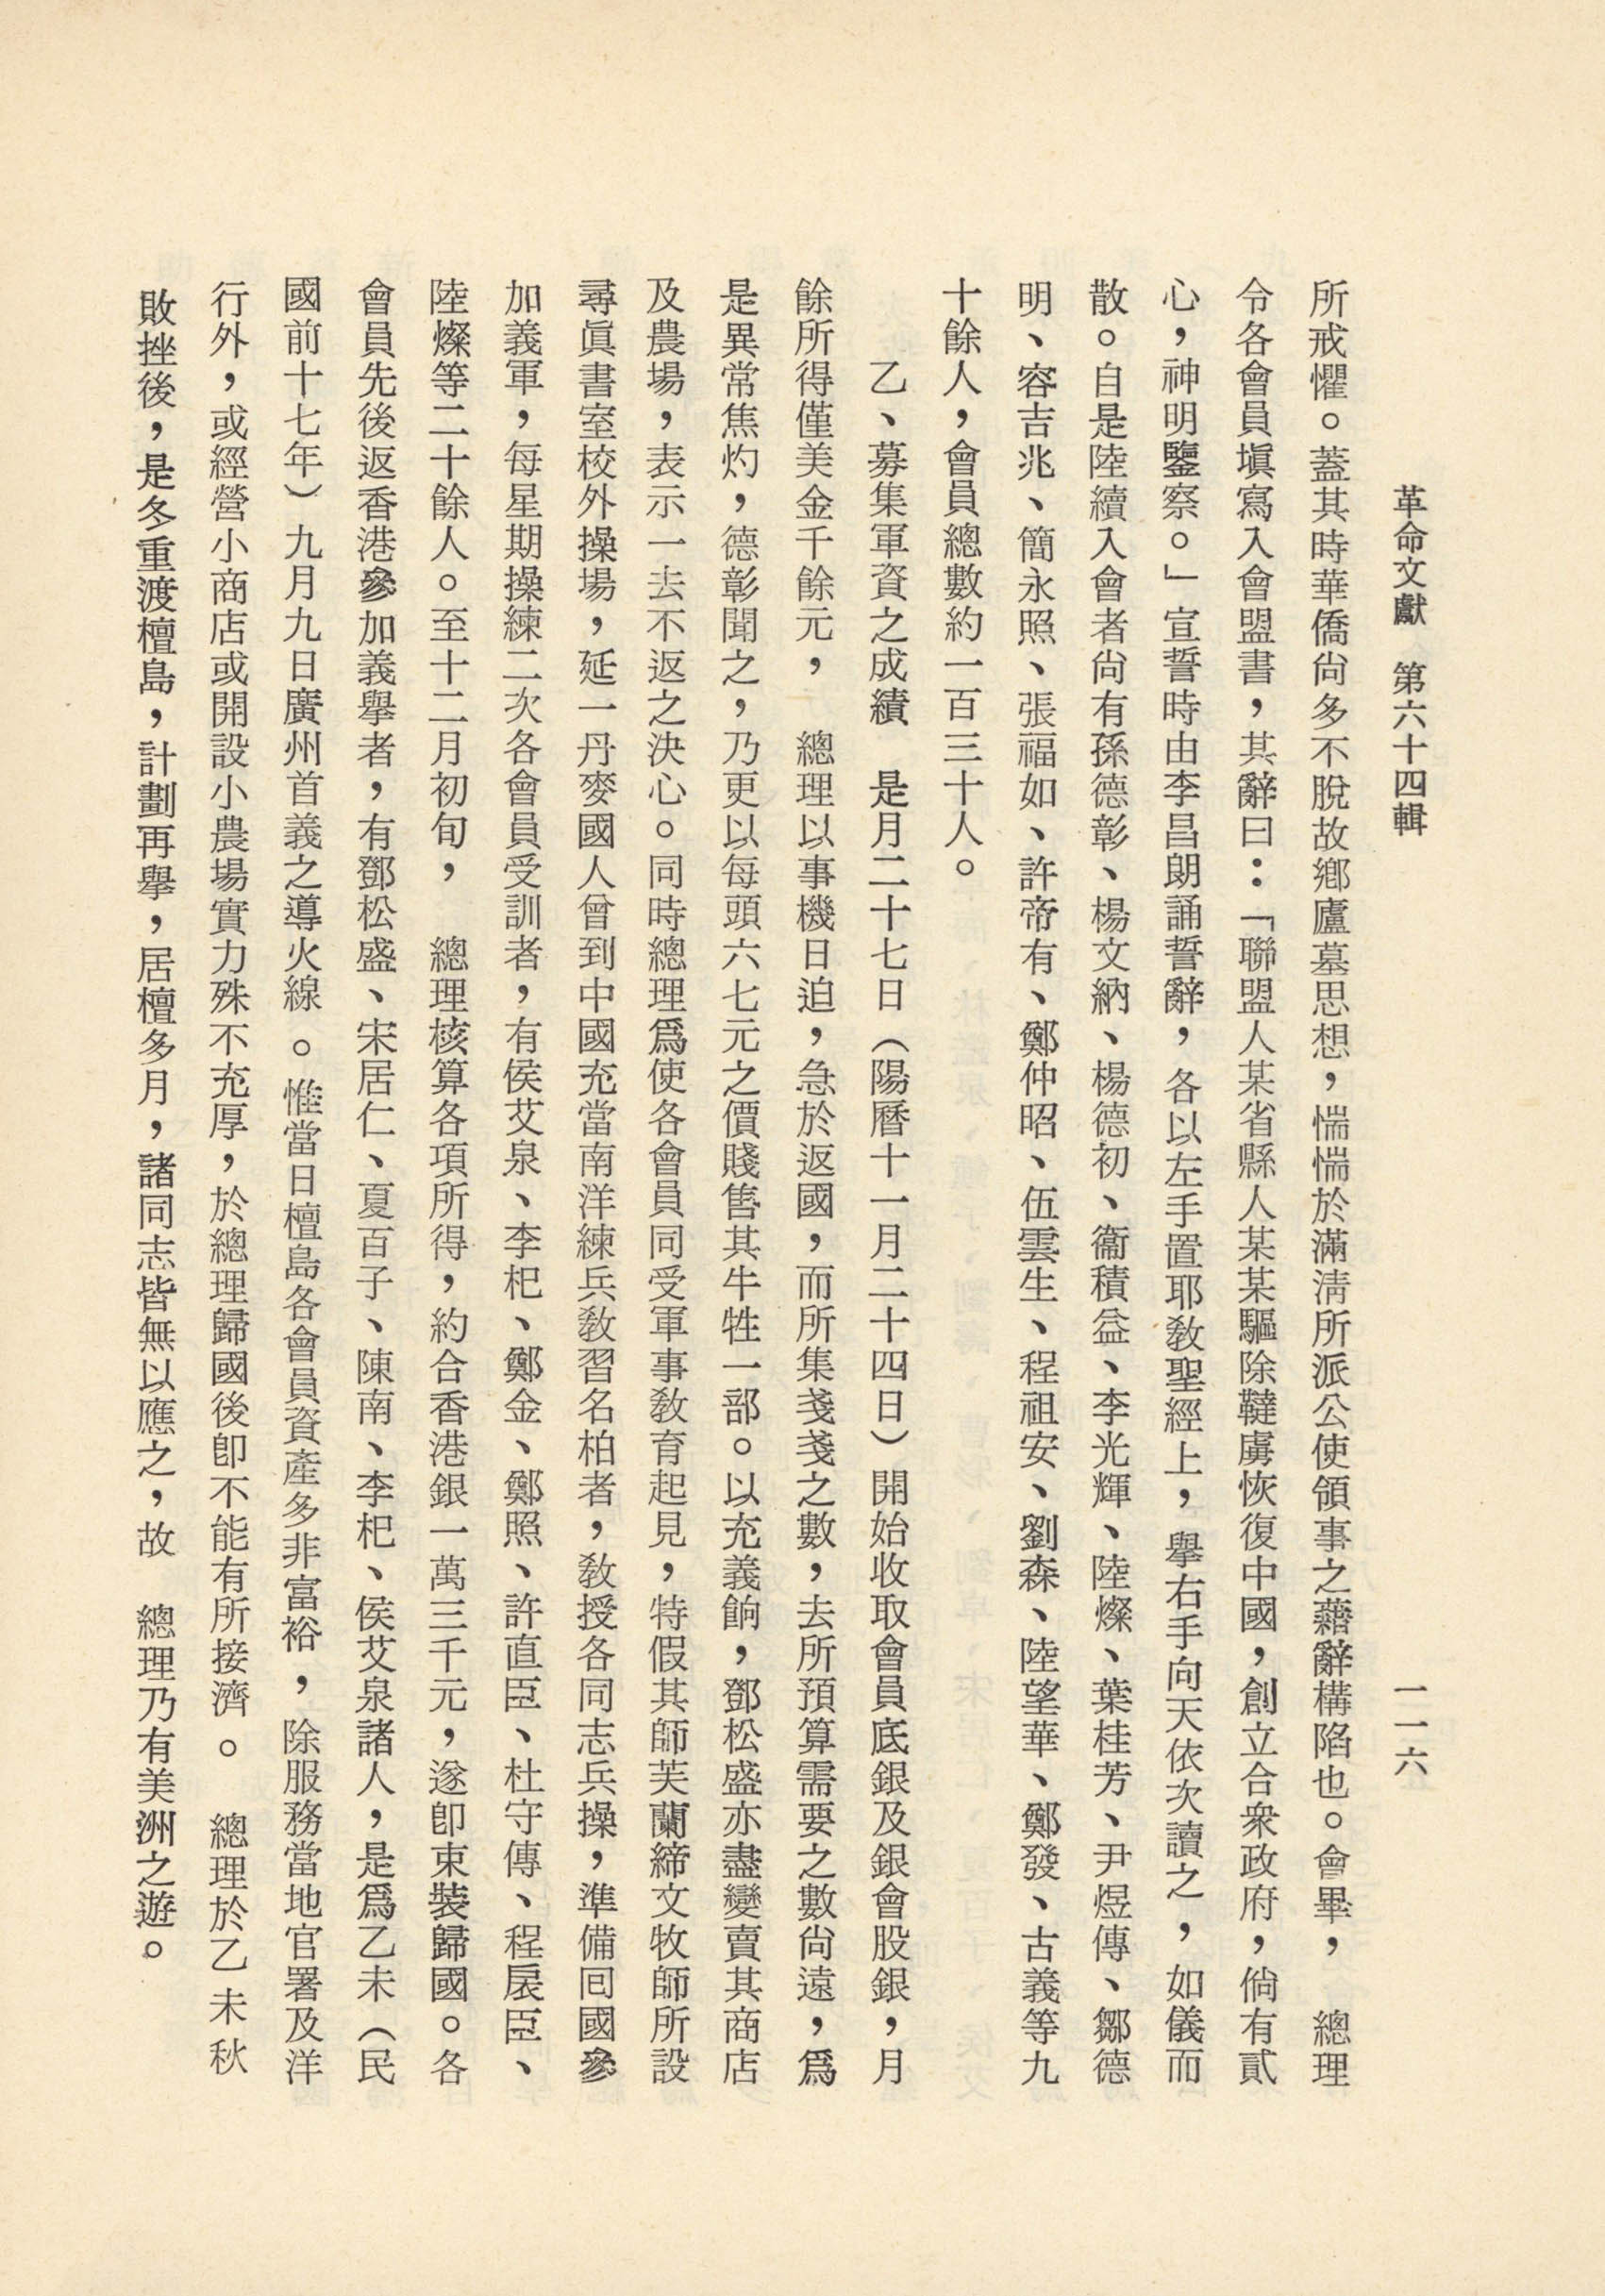 革命文獻　第六十四輯　一一六
所戒懼。蓋其時華僑尙多不脫故鄕廬墓思想，惴惴於滿淸所派公使領事之藉辭構陷也。會畢，　總理
令各會員塡寫入會盟書，其辭曰：「聯盟人某省縣人某某驅除韃虜恢復中國，創立合衆政府，倘有貳
心，神明鑒察。」宣誓時由李昌朗誦誓辭，各以左手置耶敎聖經上，舉右手向天依次讀之，如儀而
散。自是陸續入會者尙有孫德彰、楊文納、楊德初、衞積益、李光輝、陸燦、葉桂芳、尹煜傳、鄒德
明、容吉兆、簡永照、張福如、許帝有、鄭仲昭、伍雲生、程祖安、劉森、陸望華、鄭發、古義等九
十餘人，會員總數約一百三十人。
乙、募集軍資之成績　是月二十七日（陽曆十一月二十四日）開始收取會員底銀及銀會股銀，月
餘所得僅美金千餘元，　總理以事機日迫，急於返國，而所集戔戔之數，去所預算需要之數尙遠，爲
是異常焦灼，德彰聞之，乃更以每頭六七元之價賤售其牛牲一部。以充義餉，鄧松盛亦盡變賣其商店
及農場，表示一去不返之決心。同時總理爲使各會員同受軍事敎育起見，特假其師芙蘭締文牧師所設
尋眞書室校外操場，延一丹麥國人曾到中國充當南洋練兵敎習名柏者，敎授各同志兵操，準備囘國參
加義軍，每星期操練二次各會員受訓者，有侯艾泉、李杞、鄭金、鄭照、許直臣、杜守傳、程扆臣、
陸燦等二十餘人。至十二月初旬，　總理核算各項所得，約合香港銀一萬三千元，遂卽束裝歸國。各
會員先後返香港參加義舉者，有鄧松盛、宋居仁、夏百子、陳南、李杞、侯艾泉諸人，是爲乙未（民
國前十七年）九月九日廣州首義之導火線。惟當日檀島各會員資產多非富裕，除服務當地官署及洋
行外，或經營小商店或開設小農場實力殊不充厚，於總理歸國後卽不能有所接濟。　總理於乙未秋
敗挫後，是冬重渡檀島，計劃再舉，居檀多月，諸同志皆無以應之，故　總理乃有美洲之遊。